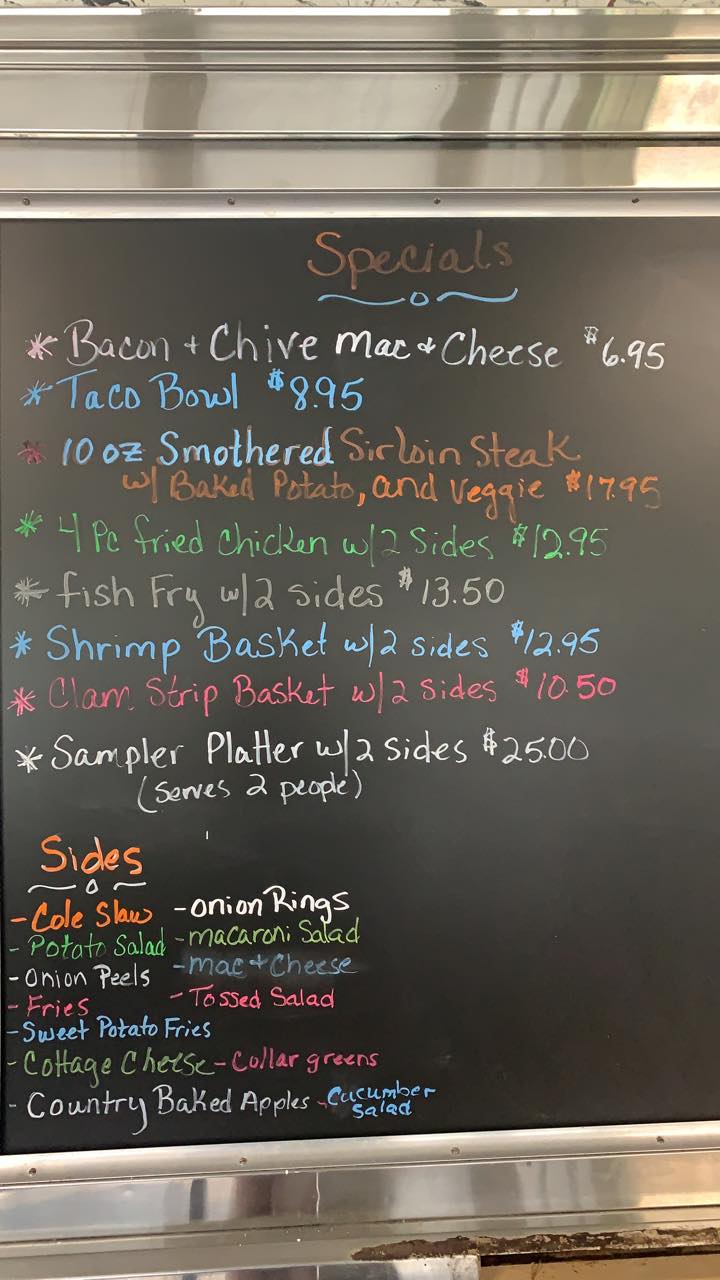 Specials
* Bacon + Chive Mac + Cheese $6.95
* Taco Bowl $8.95
* 10 oz Smothered Sirloin Steak
w/ Baked Potato, and Veggie $17.95
* 4 Pc fried chicken w/2 Sides $12.95
* fish Fry w/2 sides $13.50
* Shrimp Basket w/2 sides $12.95
* Clam Strip Basket w/2 Sides $10.50
* Sampler Platter w/2 Sides $25.00
(Serves 2 people)
Sides
- Cole Slaw - Onion Rings
- Potato Salad - macaroni Salad
- Onion Peels - mac + Cheese
- Fries - Tossed Salad
- Sweet Potato Fries
- Cottage Cheese - Collar greens
- Country Baked Apples - Cucumber
Salad